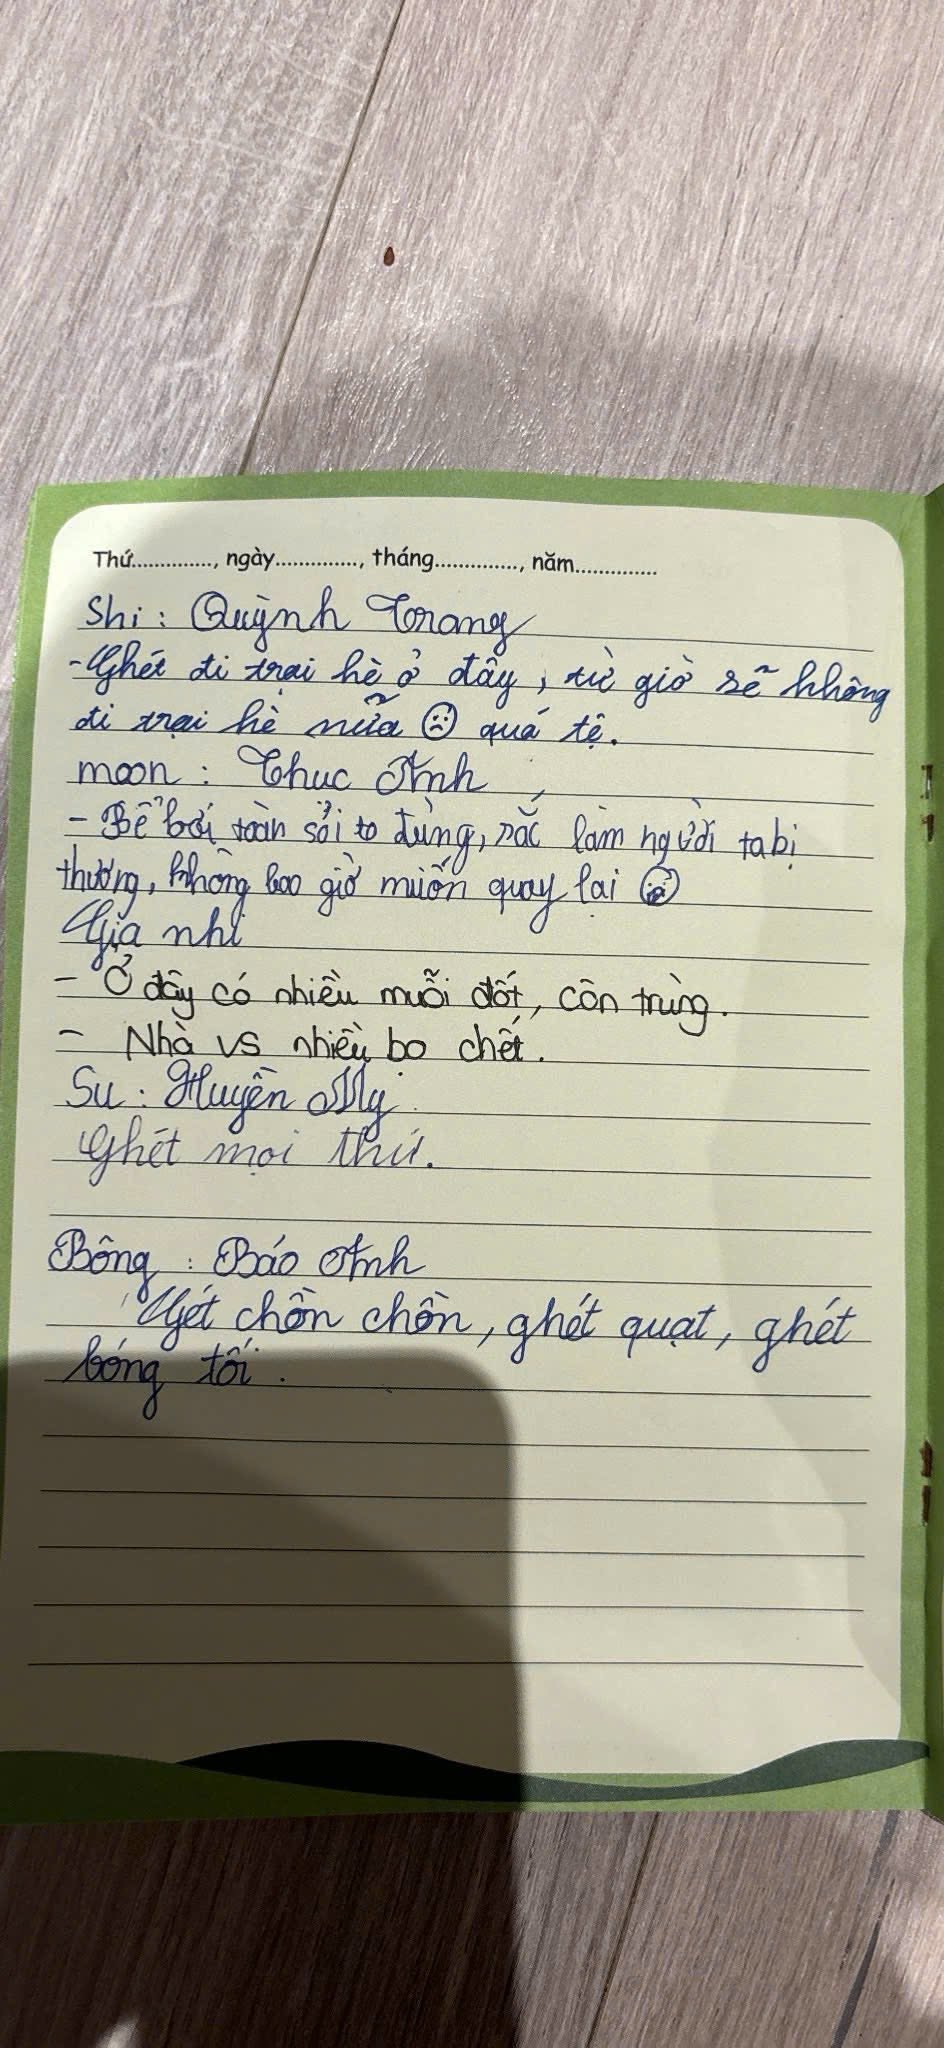 Thứ............., ngày............., tháng............., năm.............
Shi : Quỳnh Trang
- Ghét đi trại hè ở đây, từ giờ sẽ không
đi trại hè nữa ☹ quá tệ.
moon : Thuc Anh
- Bể bơi toàn sỏi to đùng, sắc làm người ta bị
thương, không bao giờ muốn quay lại ☹
Gia nhi
- Ở đây có nhiều muỗi đốt, côn trùng.
- Nhà vs nhiều bọ chết.
Su : Huyền My
Ghét mọi thứ.
Bông : Báo Anh
Ghét chồn chồn, ghét quạt, ghét
bóng tối.